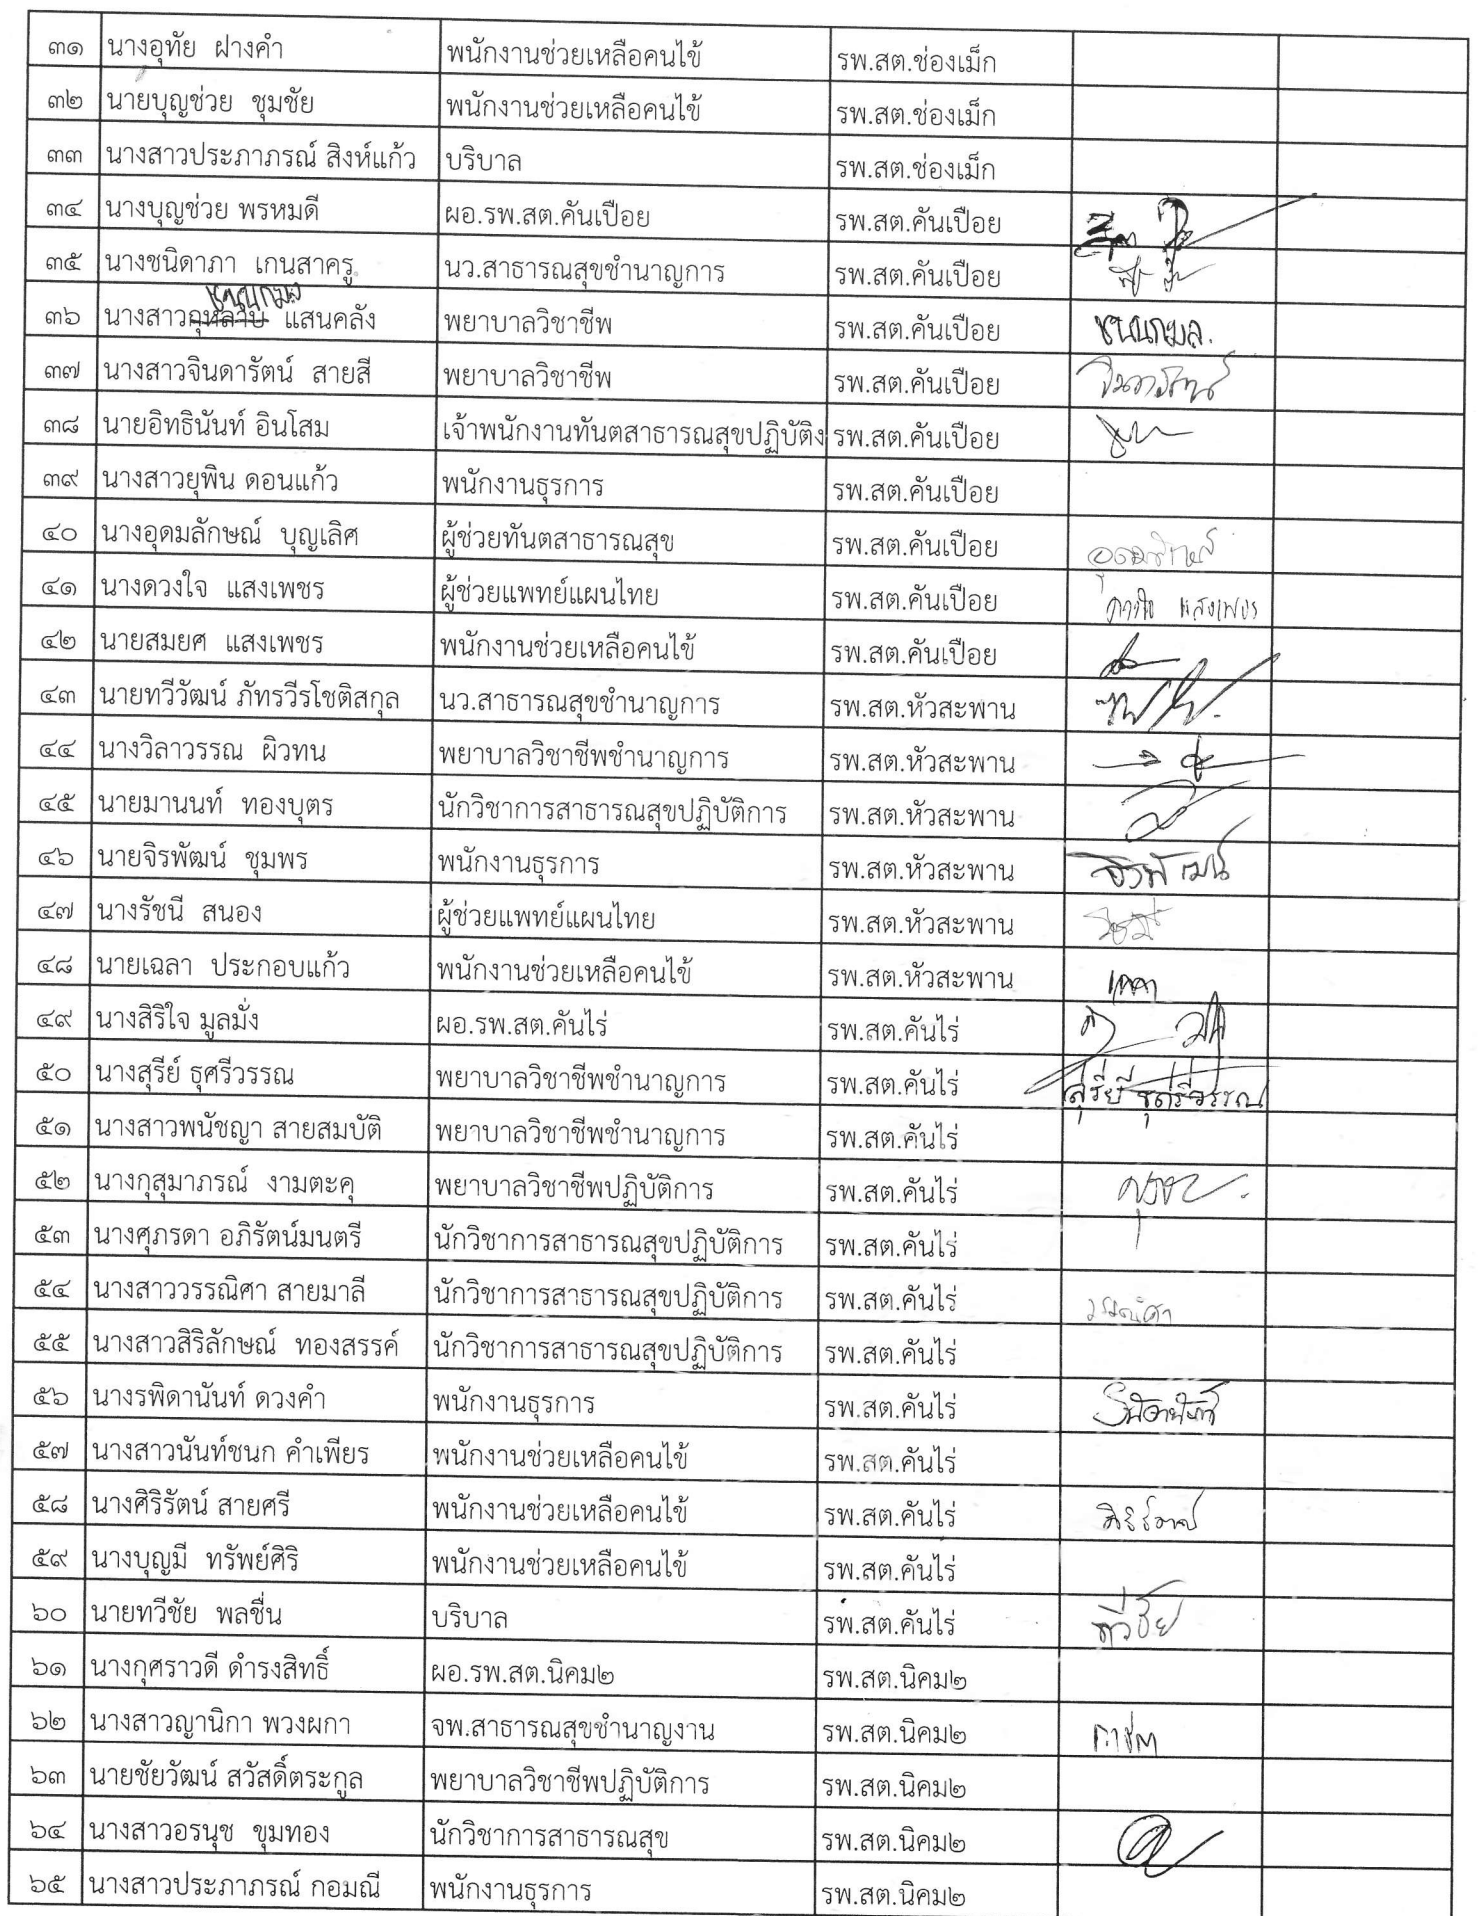 ๓๑ นางอุทัย ฝางคำ พนักงานช่วยเหลือคนไข้ รพ.สต.ช่องเม็ก
๓๒ นายบุญช่วย ชุมชัย พนักงานช่วยเหลือคนไข้ รพ.สต.ช่องเม็ก
๓๓ นางสาวประภาภรณ์ สิงห์แก้ว บริบาล รพ.สต.ช่องเม็ก
๓๔ นางบุญช่วย พรหมดี ผอ.รพ.สต.คันเปือย รพ.สต.คันเปือย
๓๕ นางชนิดาภา เกนสาครู นว.สาธารณสุขชำนาญการ รพ.สต.คันเปือย
ชนนกมล
๓๖ นางสาวกุหลาบ แสนคลัง พยาบาลวิชาชีพ รพ.สต.คันเปือย ชนนกมล.
๓๗ นางสาวจินดารัตน์ สายสี พยาบาลวิชาชีพ รพ.สต.คันเปือย จินดารัตน์
๓๘ นายอิทธินันท์ อินโสม เจ้าพนักงานทันตสาธารณสุขปฏิบัติง รพ.สต.คันเปือย
๓๙ นางสาวยุพิน ดอนแก้ว พนักงานธุรการ รพ.สต.คันเปือย
๔๐ นางอุดมลักษณ์ บุญเลิศ ผู้ช่วยทันตสาธารณสุข รพ.สต.คันเปือย อุดมลักษณ์
๔๑ นางดวงใจ แสงเพชร ผู้ช่วยแพทย์แผนไทย รพ.สต.คันเปือย ดวงใจ แสงเพชร
๔๒ นายสมยศ แสงเพชร พนักงานช่วยเหลือคนไข้ รพ.สต.คันเปือย
๔๓ นายทวีวัฒน์ ภัทรวีรโชติสกุล นว.สาธารณสุขชำนาญการ รพ.สต.หัวสะพาน
๔๔ นางวิลาวรรณ ผิวทน พยาบาลวิชาชีพชำนาญการ รพ.สต.หัวสะพาน
๔๕ นายมานนท์ ทองบุตร นักวิชาการสาธารณสุขปฏิบัติการ รพ.สต.หัวสะพาน
๔๖ นายจิรพัฒน์ ชุมพร พนักงานธุรการ รพ.สต.หัวสะพาน จิรพัฒน์
๔๗ นางรัชนี สนอง ผู้ช่วยแพทย์แผนไทย รพ.สต.หัวสะพาน รัชนี
๔๘ นายเฉลา ประกอบแก้ว พนักงานช่วยเหลือคนไข้ รพ.สต.หัวสะพาน เฉลา
๔๙ นางสิริใจ มูลมั่ง ผอ.รพ.สต.คันไร่ รพ.สต.คันไร่
๕๐ นางสุรีย์ ธุศรีวรรณ พยาบาลวิชาชีพชำนาญการ รพ.สต.คันไร่ สุรีย์ ธุศรีวรรณ
๕๑ นางสาวพนัชญา สายสมบัติ พยาบาลวิชาชีพชำนาญการ รพ.สต.คันไร่
๕๒ นางกุสุมาภรณ์ งามตะคุ พยาบาลวิชาชีพปฏิบัติการ รพ.สต.คันไร่
๕๓ นางศุภรดา อภิรัตน์มนตรี นักวิชาการสาธารณสุขปฏิบัติการ รพ.สต.คันไร่
๕๔ นางสาววรรณิศา สายมาลี นักวิชาการสาธารณสุขปฏิบัติการ รพ.สต.คันไร่ วรรณิศา
๕๕ นางสาวสิริลักษณ์ ทองสรรค์ นักวิชาการสาธารณสุขปฏิบัติการ รพ.สต.คันไร่
๕๖ นางรพิดานันท์ ดวงคำ พนักงานธุรการ รพ.สต.คันไร่ รพิดานันท์
๕๗ นางสาวนันท์ชนก คำเพียร พนักงานช่วยเหลือคนไข้ รพ.สต.คันไร่
๕๘ นางศิริรัตน์ สายศรี พนักงานช่วยเหลือคนไข้ รพ.สต.คันไร่ ศิริรัตน์
๕๙ นางบุญมี ทรัพย์ศิริ พนักงานช่วยเหลือคนไข้ รพ.สต.คันไร่
๖๐ นายทวีชัย พลชื่น บริบาล รพ.สต.คันไร่ ทวีชัย
๖๑ นางกุศราวดี ดำรงสิทธิ์ ผอ.รพ.สต.นิคม๒ รพ.สต.นิคม๒
๖๒ นางสาวญานิกา พวงผกา จพ.สาธารณสุขชำนาญงาน รพ.สต.นิคม๒
๖๓ นายชัยวัฒน์ สวัสดิ์ตระกูล พยาบาลวิชาชีพปฏิบัติการ รพ.สต.นิคม๒
๖๔ นางสาวอรนุช ขุมทอง นักวิชาการสาธารณสุข รพ.สต.นิคม๒
๖๕ นางสาวประภาภรณ์ กอมณี พนักงานธุรการ รพ.สต.นิคม๒